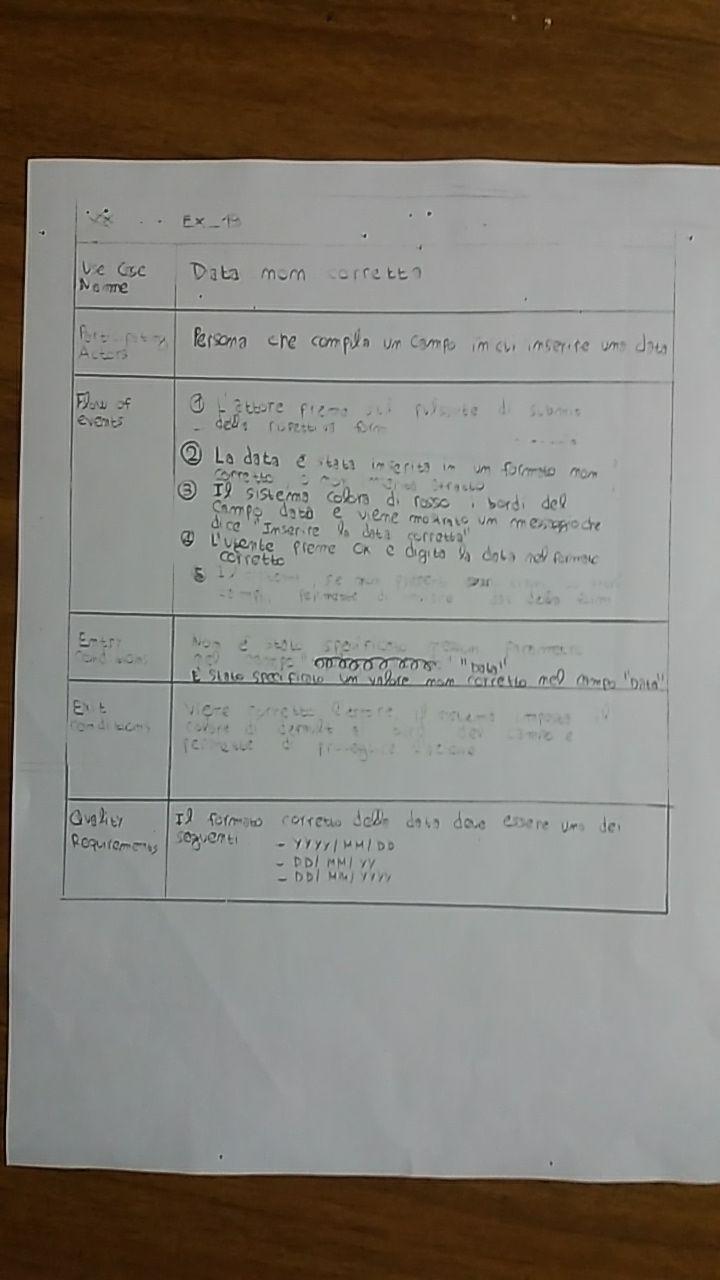 EX_13
Use Case
Name
Data non corretta
Participating
Actors
Persona che compila un campo in cui inserire una data
Flow of
events
① L'attore preme sul pulsante di submit
della rispettiva form
② La data è stata inserita in un formato non
corretto
③ Il sistema colora di rosso i bordi del
campo data e viene mostrato un messaggio che
dice "Inserire la data corretta"
④ L'utente preme OK e digita la data nel formato
corretto
5 Il sistema, se non
permette di della form
Entry
conditions
Non è stato specificato
nel campo "Data"
È stato specificato un valore non corretto nel campo "Data"
Exit
conditions
Viene corretto l'errore, il sistema imposta il
colore di default campo e
permette di
Quality
Requirements
Il formato corretto della data deve essere uno dei
seguenti
- YYYY/MM/DD
- DD/MM/YY
- DD/MM/YYYY